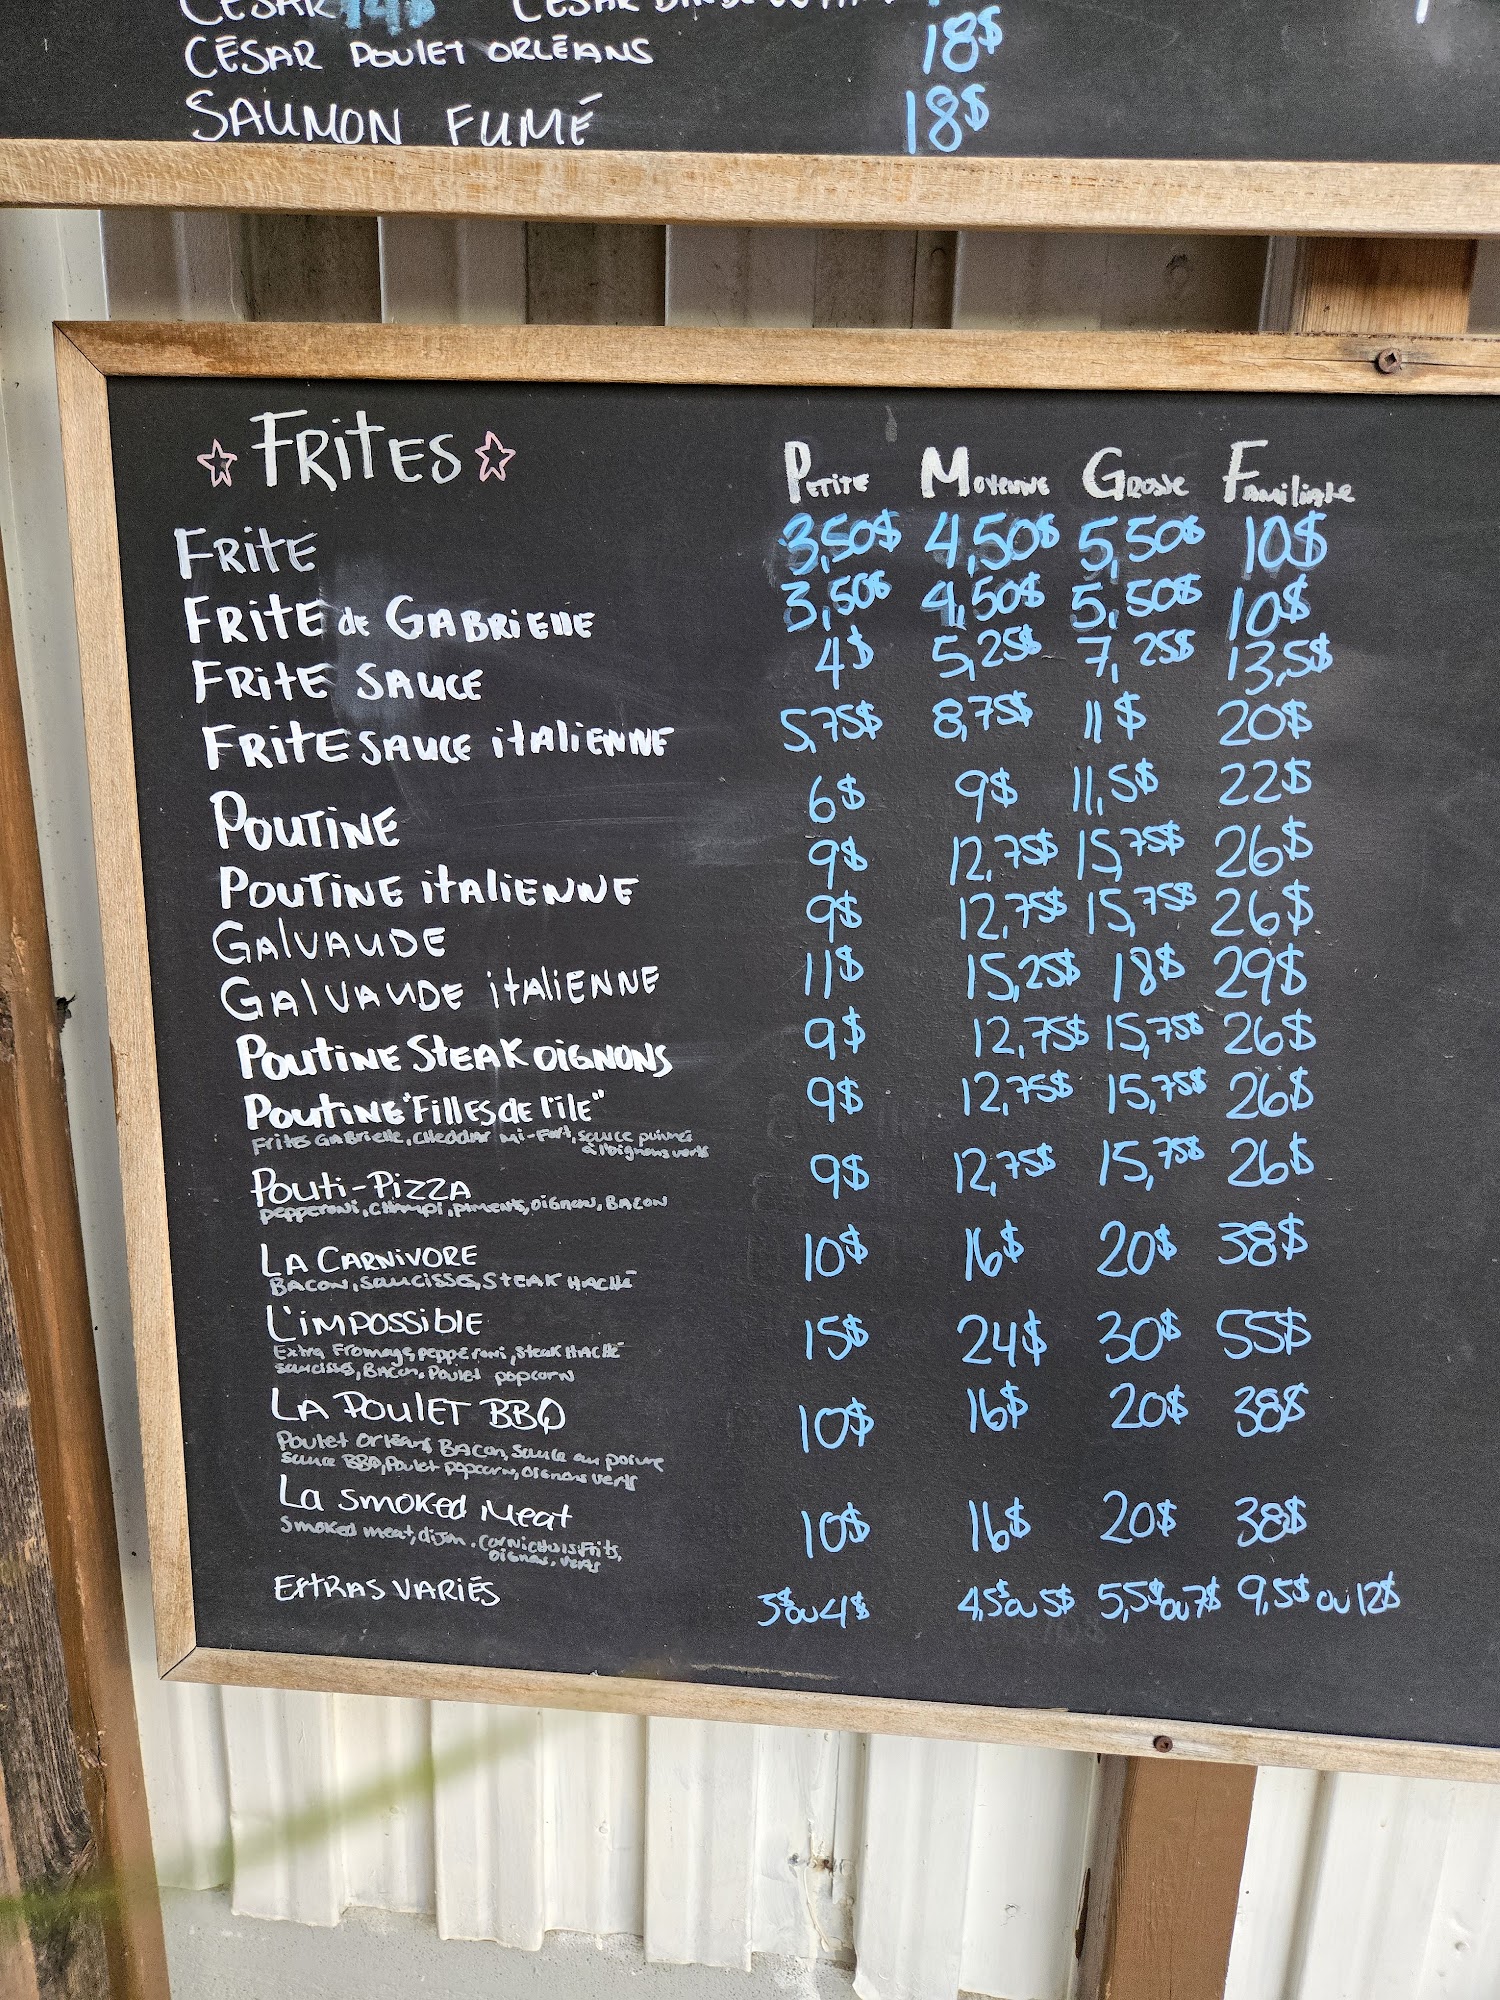 CÉSAR 14$ CÉSAR
CÉSAR POULET ORLÉANS 18$
SAUMON FUMÉ 18$
FRITES PETITE MOYENNE GROSSE FAMILIALE
FRITE 3,50$ 4,50$ 5,50$ 10$
FRITE de GABRIELLE 3,50$ 4,50$ 5,50$ 10$
FRITE SAUCE 4$ 5,25$ 7,25$ 13,5$
FRITE SAUCE iTALIENNE 5,75$ 8,75$ 11$ 20$
POUTINE 6$ 9$ 11,5$ 22$
POUTINE iTALIENNE 9$ 12,75$ 15,75$ 26$
GALVAUDE 9$ 12,75$ 15,75$ 26$
GALVAUDE iTALIENNE 11$ 15,25$ 18$ 29$
POUTINE STEAK OIGNONS 9$ 12,75$ 15,75$ 26$
POUTINE "FILLES de l'ÎLE" 9$ 12,75$ 15,75$ 26$
FRITES GABRIELLE, CHEDDAR Mi-FORT, SAUCE
à l'oignons verts
POUTI-PIZZA 9$ 12,75$ 15,75$ 26$
PEPPERONI, CHAMPI, PIMENTS, OIGNONS, BACON
LA CARNIVORE 10$ 16$ 20$ 38$
BACON, SAUCISSES, STEAK HACHÉ
L'IMPOSSIBLE 15$ 24$ 30$ 55$
EXTRA FROMAGE, PEPPERONI, STEAK HACHÉ
SAUCISSES, BACON, POULET POPCORN
LA POULET BBQ 10$ 16$ 20$ 38$
POULET ORLÉANS BACON, SAUCE au poivre
SAUCE BBQ, POULET popcorn, OIGNONS VERTS
LA SMOKED MEAT 10$ 16$ 20$ 38$
SMOKED MEAT, dijon, CORNICHONS FRITS,
OIGNONS VERTS
EXTRAS VARIÉS 3$ ou 4$ 4,5$ ou 5$ 5,5$ ou 7$ 9,5$ ou 12$